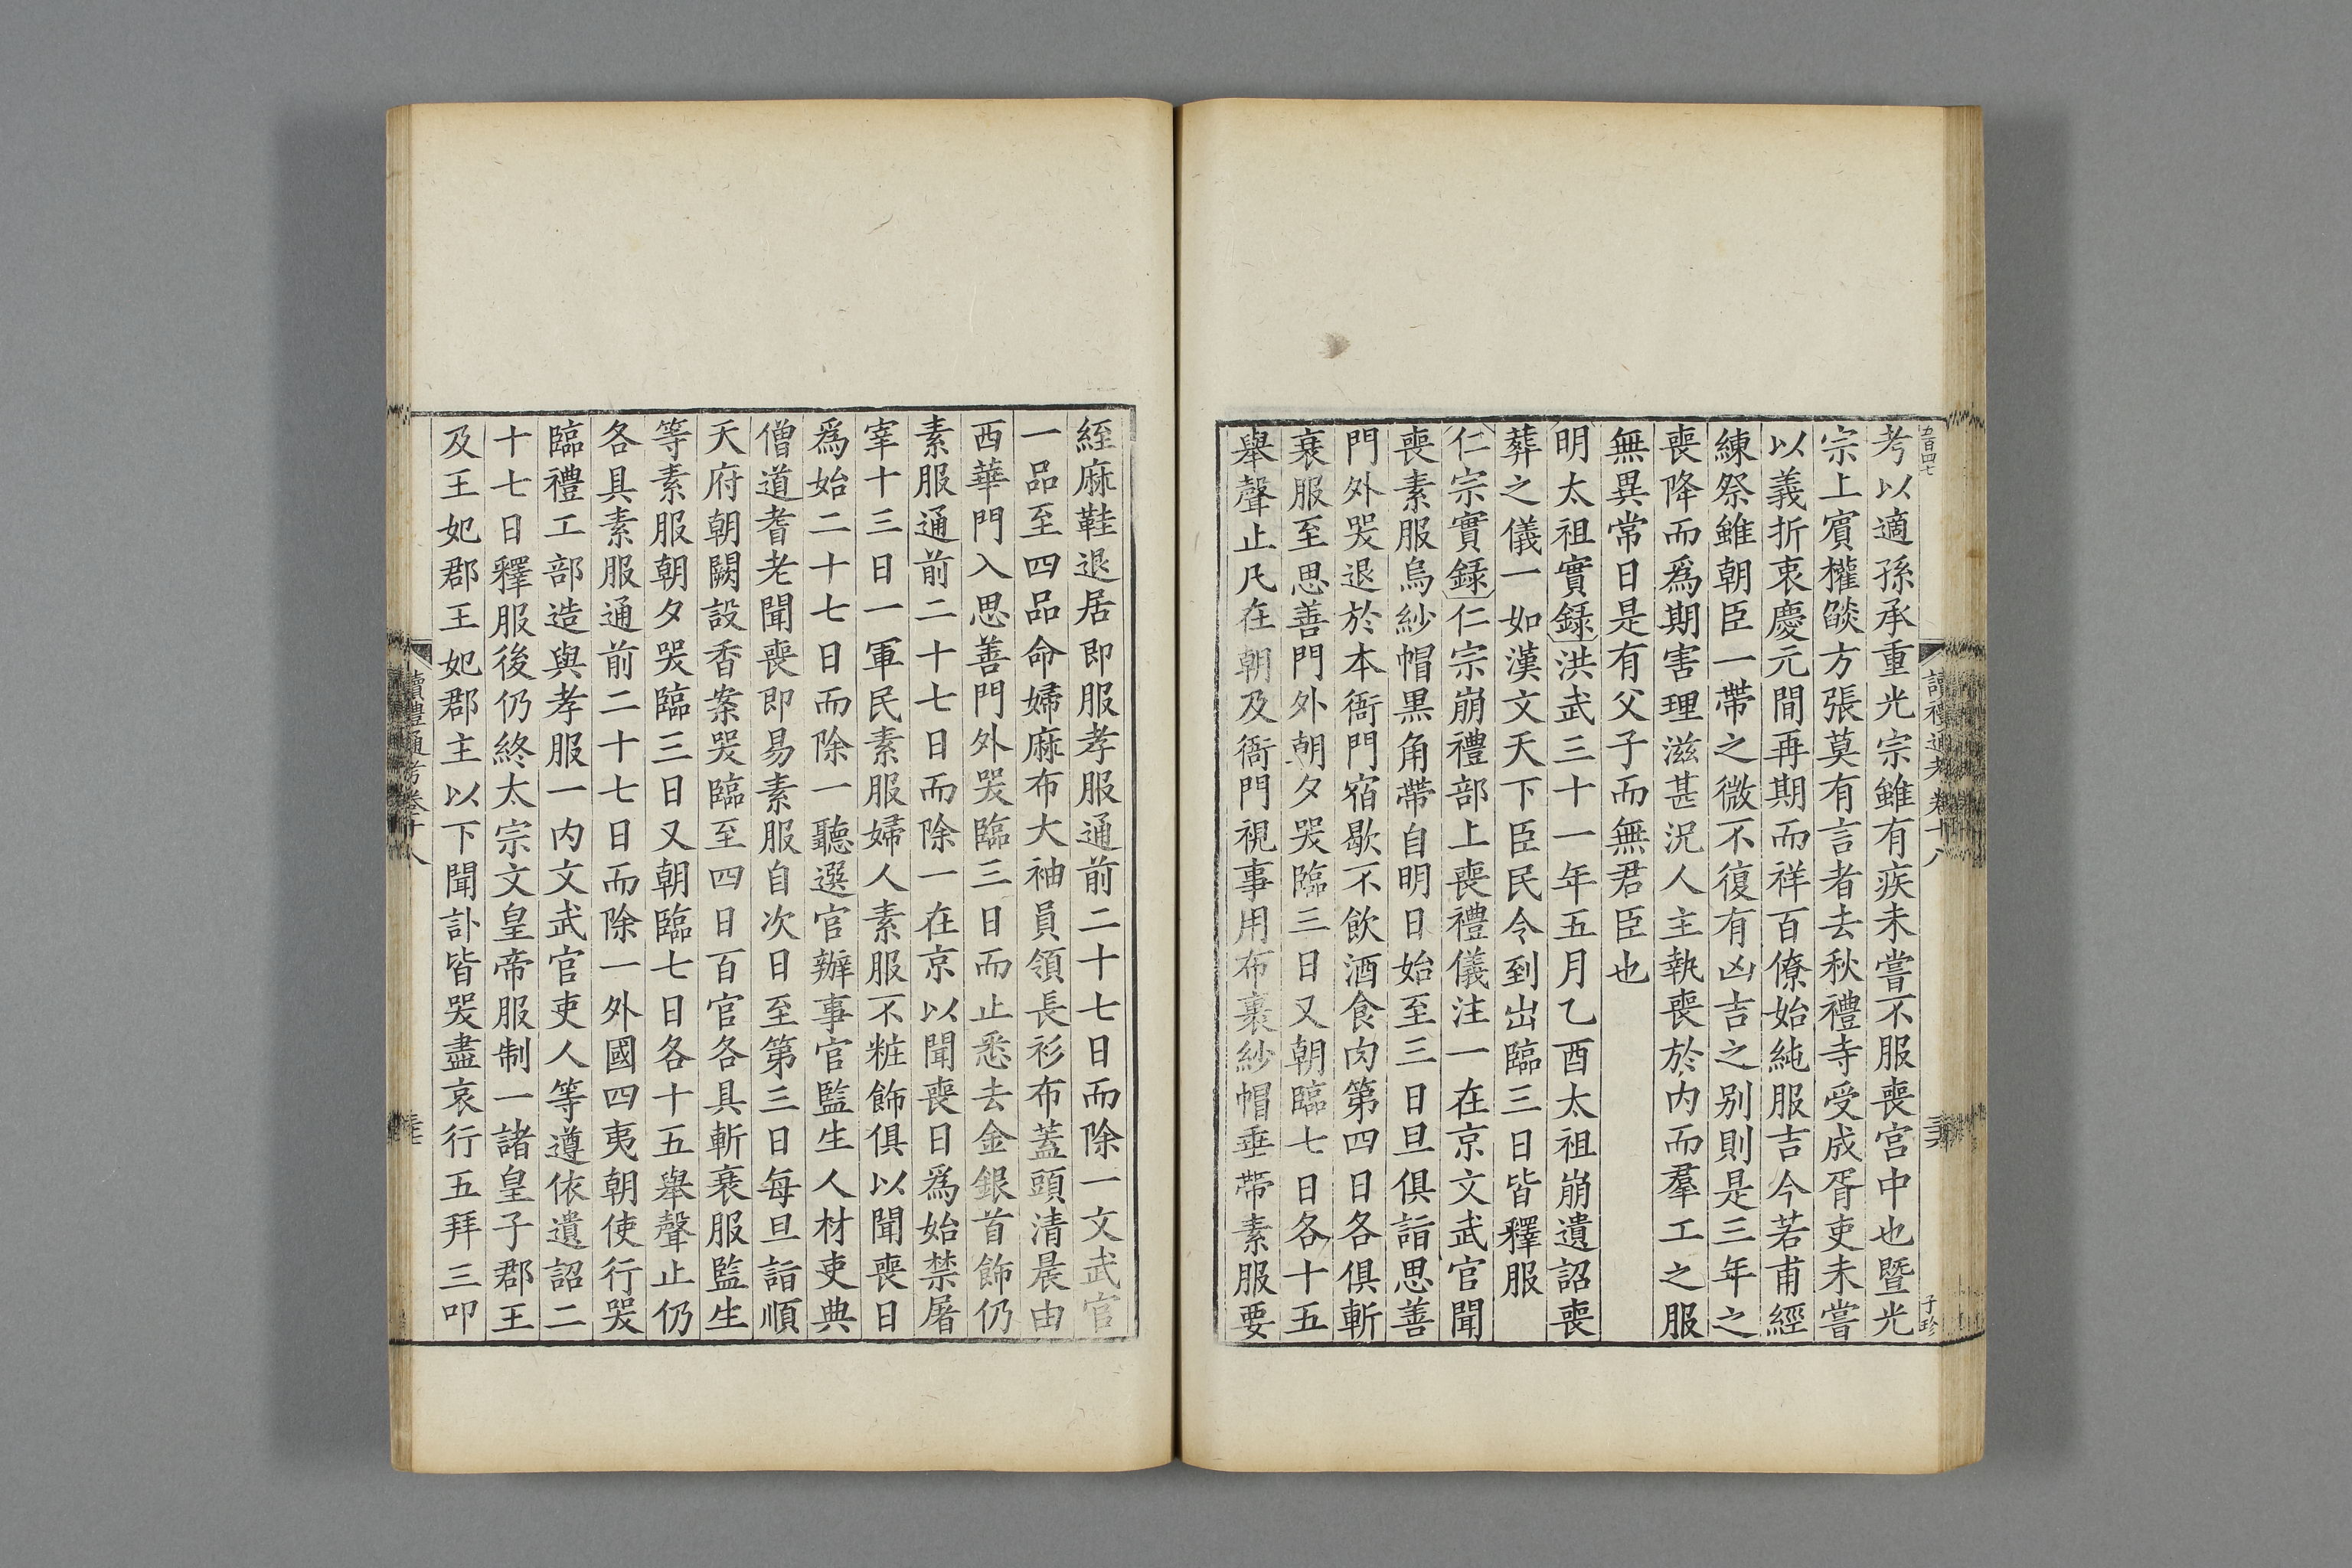 五百四七
讀禮通考卷十八
子珍
考以適孫承重光宗雖有疾未嘗不服喪宮中也暨光
宗上賔權燄方張莫有言者去秋禮寺受成胥吏未嘗
以義折衷慶元間再期而祥百僚始純服吉今若甫經
練祭雖朝臣一帶之微不復有凶吉之别則是三年之
喪降而爲期害理滋甚況人主執喪於内而羣工之服
無異常日是有父子而無君臣也
明太祖實録洪武三十一年五月乙酉太祖崩遺詔喪
葬之儀一如漢文天下臣民令到出臨三日皆釋服
仁宗實録仁宗崩禮部上喪禮儀注一在京文武官聞
喪素服烏紗帽黒角帶自明日始至三日旦俱詣思善
門外哭退於本衙門宿歇不飲酒食肉第四日各俱斬
衰服至思善門外朝夕哭臨三日又朝臨七日各十五
舉聲止凡在朝及衙門視事用布裹紗帽垂帶素服要
絰麻鞋退居即服孝服通前二十七日而除一文武官
一品至四品命婦麻布大袖員領長衫布蓋頭清晨由
西華門入思善門外哭臨三日而止悉去金銀首飾仍
素服通前二十七日而除一在京以聞喪日爲始禁屠
宰十三日一軍民素服婦人素服不粧飾俱以聞喪日
爲始二十七日而除一聽選官辦事官監生人材吏典
僧道耆老聞喪即易素服自次日至第三日每旦詣順
天府朝闕設香案哭臨至四日百官各具斬衰服監生
等素服朝夕哭臨三日又朝臨七日各十五舉聲止仍
各具素服通前二十七日而除一外國四夷朝使行哭
臨禮工部造與孝服一内文武官吏人等遵依遺詔二
十七日釋服後仍終太宗文皇帝服制一諸皇子郡王
及王妃郡王妃郡主以下聞訃皆哭盡哀行五拜三叩
讀禮通考卷十八